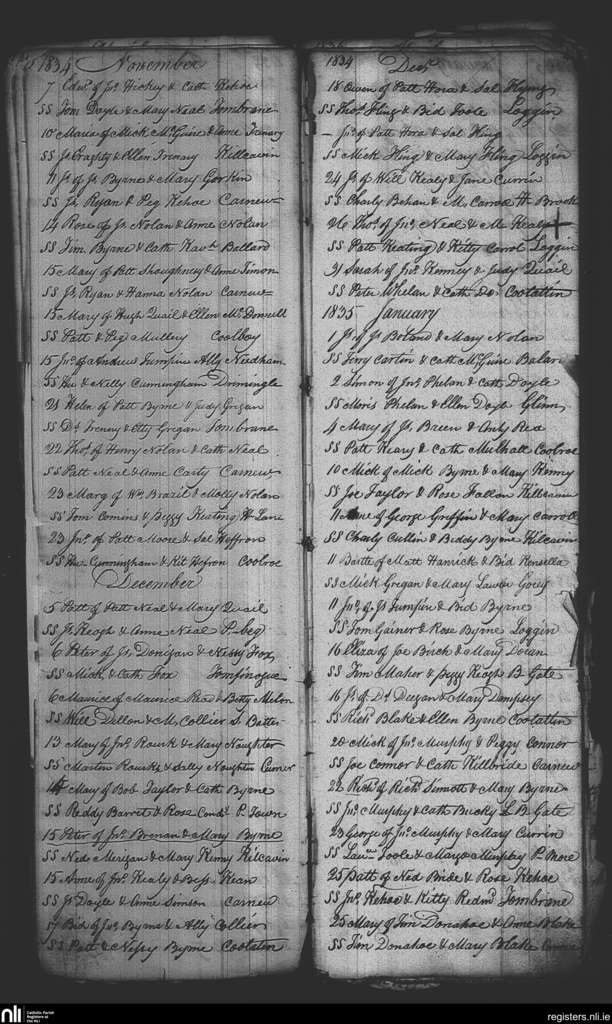 1834 November
7 Edwd. of Js. Hickey & Cath Kehoe
SS Tom Doyle & Mary Neal Tombrane
10 Maria of Mick McGuire & Anne Trenary
SS Js. & Ellen Trenary Killcavin
11 Js. of Js. Byrne & Mary Gorkin
SS Js. Ryan & Peg Kehoe Carnew
14 Rose of Js. Nolan & Anne Nolan
SS Jim. Byrne & Cath Kavh. Bullard
15 Mary of Patt Shoughney & Anne Timon
SS Js. Ryan & Hanna Nolan Carnew
15 Mary of Hugh Quail & Ellen McDonnell
SS Patt & Peg Mullery Coolboy
15 Jno. of Andrew Jumpin Ally Needham
SS & Nelly Cunningham
21 Helen of Patt Byrne & Judy Gregan
SS Ds. Treney & Etty Gregan Tombrane
22 Thos. of Henry Nolan & Cath Neal
SS Patt Neal & Anne Carty Carnew
23 Marg of Wm. Brazil & Molly Nolan
SS Tom Comins & Bizzy Keating H Lane
23 Jno. of Patt Moore & Sal Heffron
SS Cunningham & Kit Hefron Coolroe
December
5 Patt of Patt Neal & Mary Quail
SS Js. Keogh & Anne Neal P. beg
6 Peter of Js. Donigan & Nessy Fox
SS Mick & Cath Fox Tomfinogue
6 Maurice of Maurice Rea & Betty Melon
SS Will Dillon & M. Collier S. Bettes
13 Mary of Jno. Rourk & Mary Naughter
SS Martin Rourke & Sally Naughter Carnew
14 Mary of Bob Taylor & Cath Byrne
SS Reddy Barret & Rose P. Town
15 Peter of Jno. Brenan & Mary Byrne
SS Ned Merigan & Mary Kenny Kilcavin
15 Anne of Jno. Kealy & Bess Kean
SS Js. Doyle & Anne Simson Carnew
17 Bid of Jno. Byrne & Ally Collier
SS Patt & Nessy Byrne Coolattin
1834 Decr.
18 Owen of Patt Hora & Sal Flying
SS Thos. Fling & Bid Toole Loggin
– Jno. of Patt Hora & Sal Fling
SS Mick Fling & Mary Fling Loggin
24 Js. of Will Kealy & Jane Currin
SS Charly Behan & M. Carrol H. Brook
26 Thos. of Jno. Neal & M. Kealy
SS Patt Keating & Kitty Carrol Loggin
21 Sarah of Jno. Kenney & Judy Quail
SS Peter Whelan & Cath Do. Coolattin
1835 January
1 Js. of Js. Boland & Mary Nolan
SS Terry Cartin & Cath McGuire
2 Simon of Jno. Phelan & Cath Doyle
SS Moris Phelan & Ellen Doyl Glinn
4 Mary of Js. Breen & Anty Rea
SS Patt Keary & Cath Mulhall Coolroe
10 Mick of Mick Byrne & Mary Kenny
SS Joe Taylor & Rose Fallon
11 of George Griffin & Mary Carroll
SS Charly Cullin & Biddy Byrne Kilcavin
11 Bartle of Matt Hanrick & Bid Kensella
SS Mick Gregan & Mary Lawler Gorey
11 Jno. of Js. Jumpin & Bid Byrne
SS Tom Gainer & Rose Byrne Loggin
16 Eliza of Joe Birch & Mary Doran
SS Jim Maher & Bizzy Keogh B. Gate
16 Js. of Ds. Deegan & Mary Dempsey
SS Richd. Blake & Ellen Byrne Coolattin
20 Mick of Jno. Murphy & Peggy Connor
SS Joe Connor & Cath Killbride Carnew
22 Richd. of Richd. Sinnott & Mary Byrne
SS Jno. Murphy & Cath Bucky L. B. Gate
23 George of Jno. Murphy & Mary Currin
SS Toole & Mary Murphy P. More
25 Patt of Ned Bride & Rose Kehoe
SS Jno. Kehoe & Kitty Redmd. Tombrane
25 Mary of Tim Donahoe & Anne Blake
SS Tim Donahoe & Mary Blake
nli Catholic Parish Registers at the NLI
registers.nli.ie